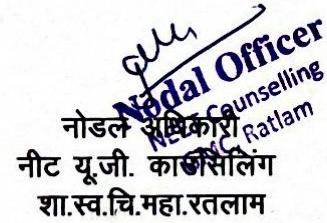 Nodal Officer
NEET Counselling
GMC, Ratlam
नोडल अधिकारी
नीट यू.जी. काउंसिलिंग
शा.स्व.चि.महा.रतलाम